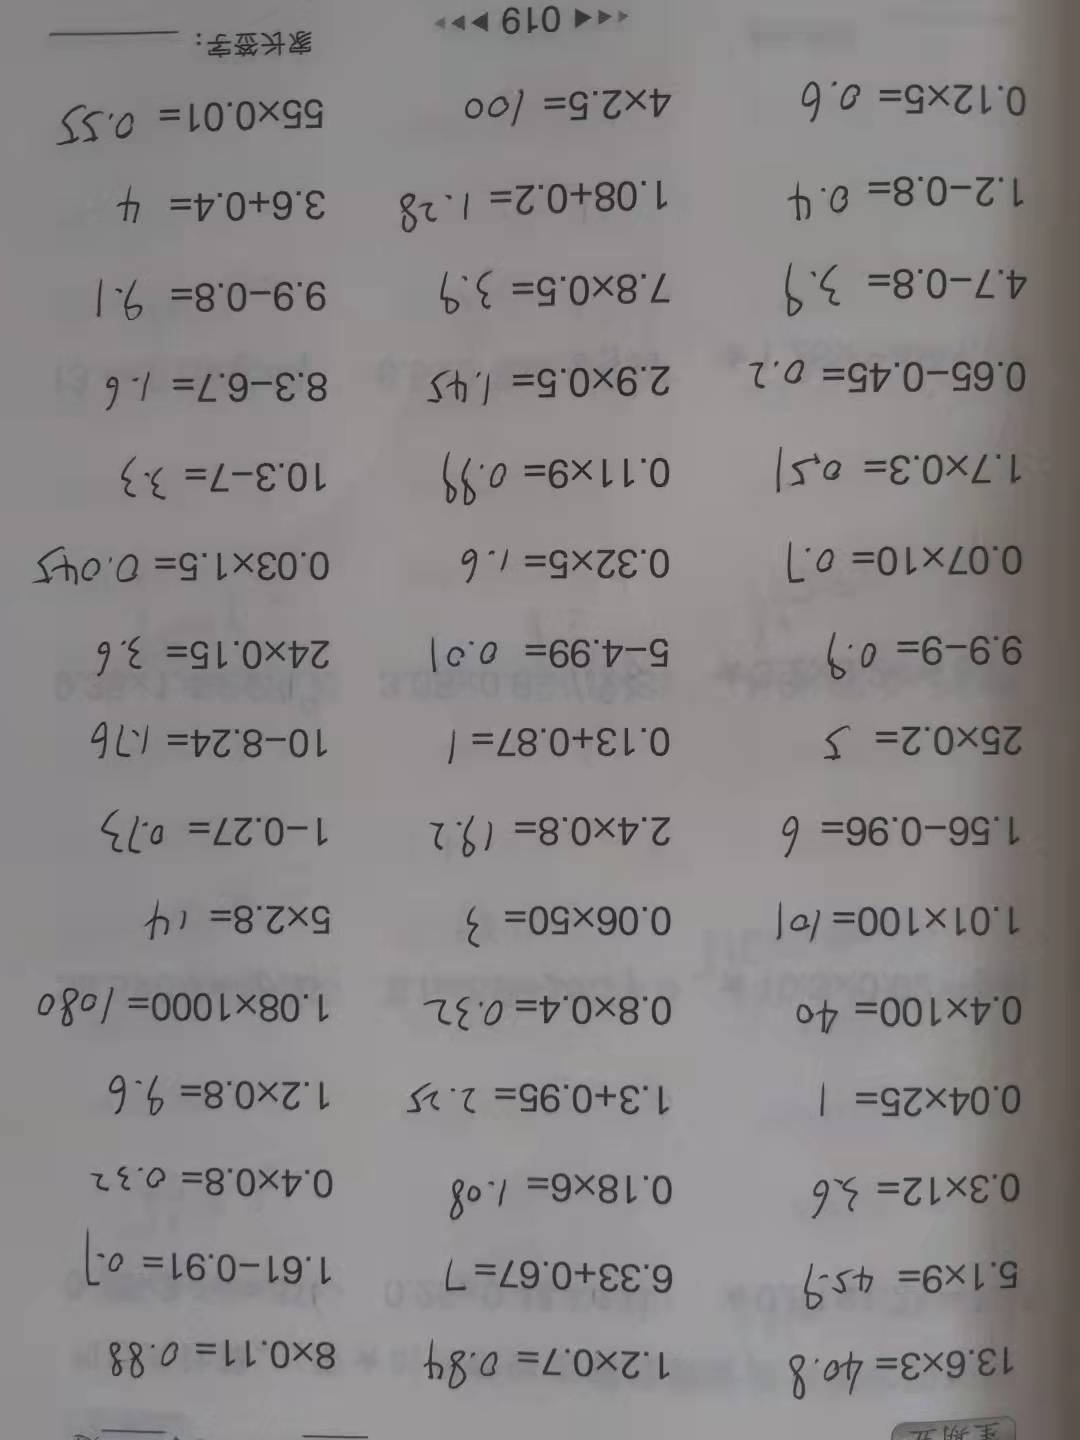 星期五
13.6×3=40.8 1.2×0.7=0.84 8×0.11=0.88
5.1×9=45.9 6.33+0.67=7 1.61−0.91=0.7
0.3×12=3.6 0.18×6=1.08 0.4×0.8=0.32
0.04×25=1 1.3+0.95=2.25 1.2×0.8=9.6
0.4×100=40 0.8×0.4=0.32 1.08×1000=1080
1.01×100=101 0.06×50=3 5×2.8=14
1.56−0.96=6 2.4×0.8=19.2 1−0.27=0.73
25×0.2=5 0.13+0.87=1 10−8.24=1.76
9.9−9=0.9 5−4.99=0.01 24×0.15=3.6
0.07×10=0.7 0.32×5=1.6 0.03×1.5=0.045
1.7×0.3=0.51 0.11×9=0.99 10.3−7=3.3
0.65−0.45=0.2 2.9×0.5=1.45 8.3−6.7=1.6
4.7−0.8=3.9 7.8×0.5=3.9 9.9−0.8=9.1
1.2−0.8=0.4 1.08+0.2=1.28 3.6+0.4=4
0.12×5=0.6 4×2.5=100 55×0.01=0.55
019 家长签字：